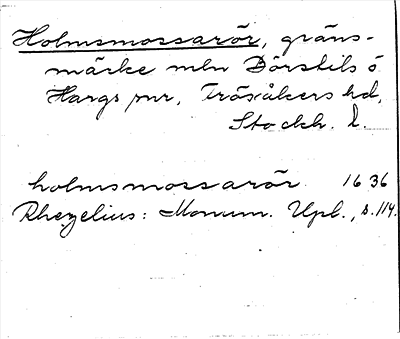 Holmsmossarör, gräns-
märke mln Börstils o
Hargs snr, Frösåkers hd,
Stockh. l.
holmsmossarör 1636
Rhezelius: Monum. Upl., s. 114.